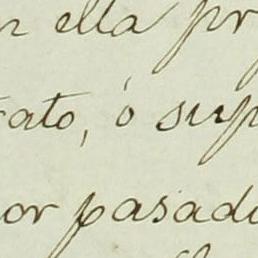 n ella pr
rato, ó sup
or pasad